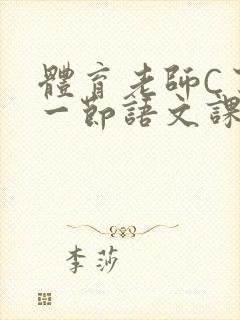 體育老師C
一節語文課
李莎